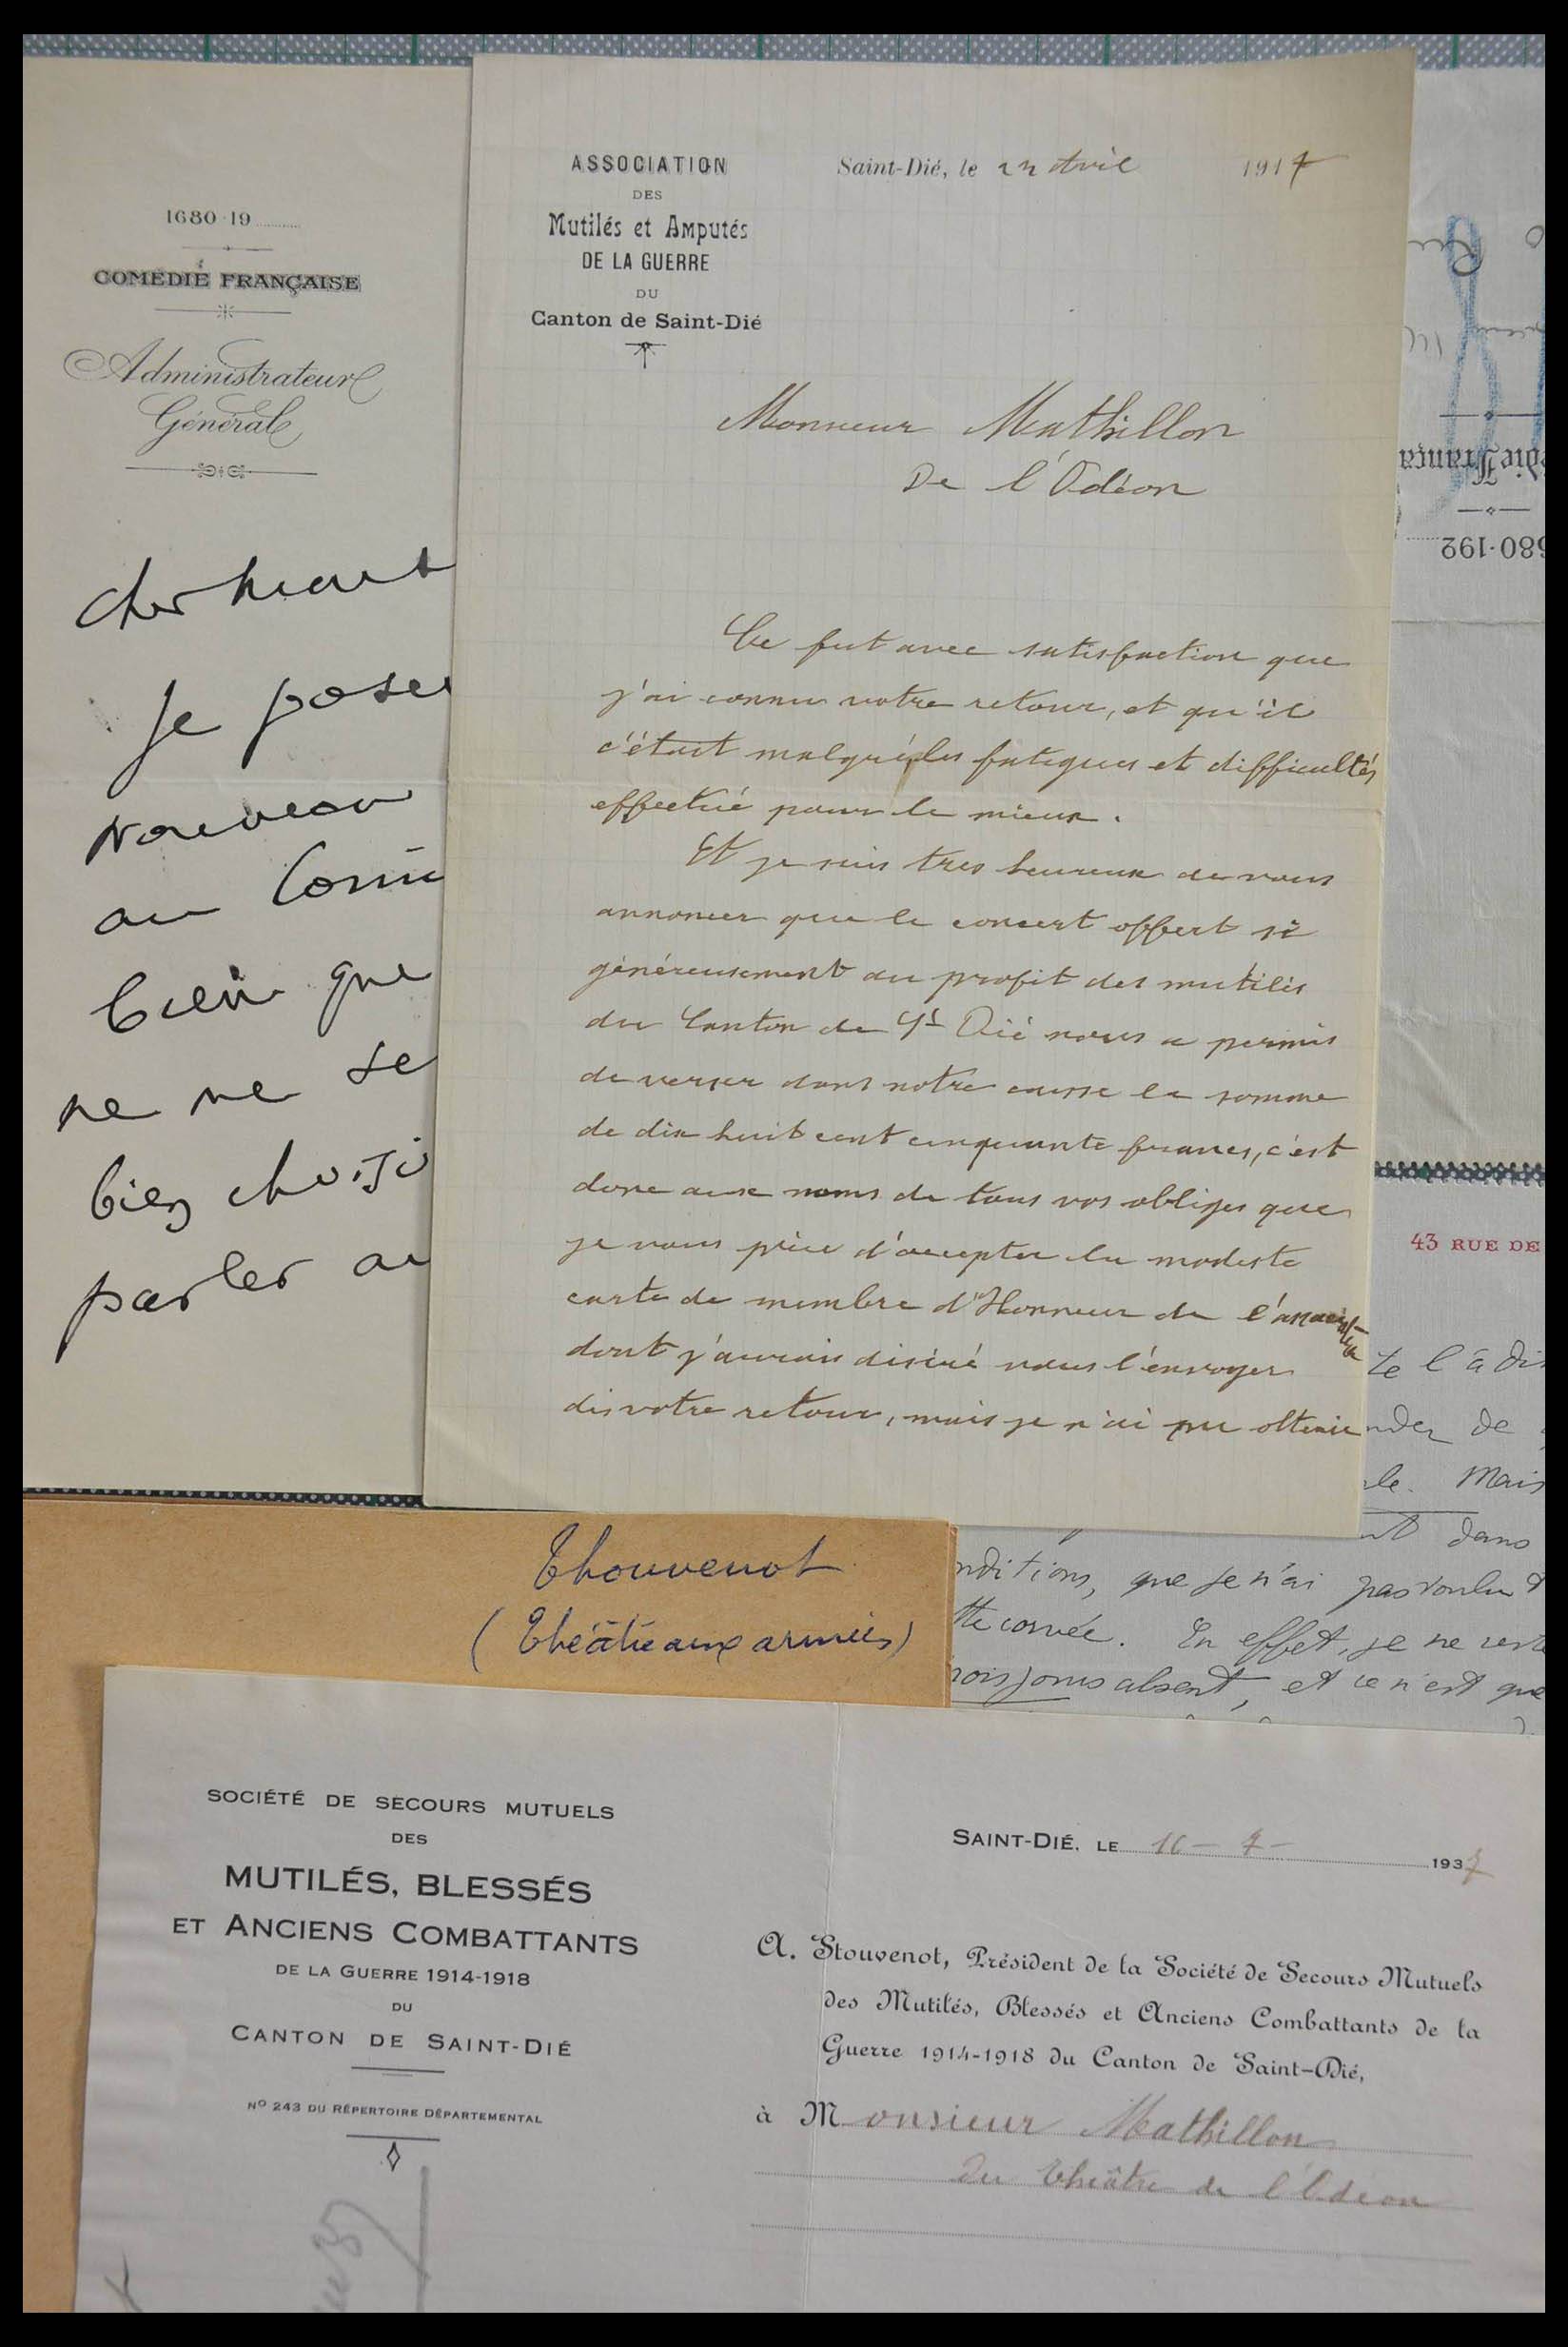 1680-19
COMÉDIE FRANÇAISE
Administrateur
Général
Cher
Je
nouveau
au
bien que
ne me se
bien choisi
parler au
ASSOCIATION
DES
Mutilés et Amputés
DE LA GUERRE
DU
Canton de Saint-Dié
Saint-Dié, le 22 Avril 1917
Monsieur Mathillon
De l'Odéon
Ce fut avec satisfaction que
j'ai connu votre retour, et qu'il
c'était malgré les fatigues et difficultés
effectué pour le mieux.
Et je suis tres heureux de vous
annoncer que le concert offert si
généreusement au profit des mutilés
du Canton de St Dié nous a permis
de verser dans notre caisse la somme
de dix huit cent cinquante francs, c'est
donc aux noms de tous vos obligés que
je vous prie d'accepter la modeste
carte de membre d'Honneur de l'association
dont j'aurais désiré vous l'envoyer
dès votre retour, mais je n'ai pu obtenir
die França
680-192
43 RUE DE
te l'a di
nder de
le. Mais
nt dans
nditions, que je n'ai pas voulu
tte corvée. En effet, je ne reste
rois jours absent, et ce n'est que
Thouvenot
(Théâtre aux armées)
SOCIÉTÉ DE SECOURS MUTUELS
DES
MUTILÉS, BLESSÉS
ET ANCIENS COMBATTANTS
DE LA GUERRE 1914-1918
DU
CANTON DE SAINT-DIÉ
No 243 DU RÉPERTOIRE DÉPARTEMENTAL
SAINT-DIÉ, LE 16 - 7 - 1937
A. Stouvenot, Président de la Société de Secours Mutuels
des Mutilés, Blessés et Anciens Combattants de la
Guerre 1914-1918 du Canton de Saint-Dié,
à Monsieur Mathillon
du Théâtre de l'Odéon